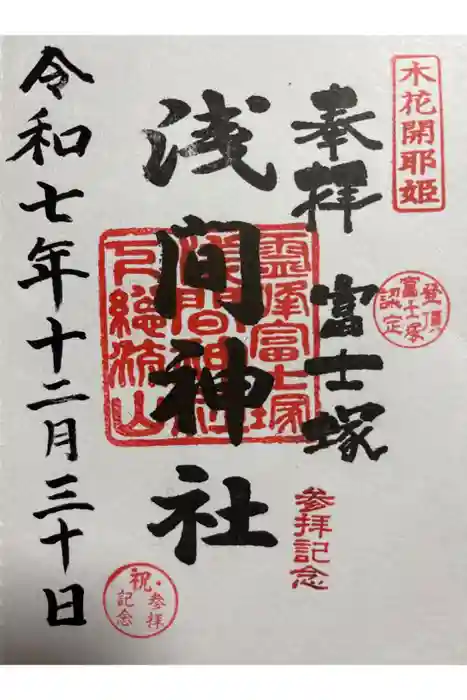 木花開耶姫
奉拝　富士塚
登頂
富士塚
認定
参拝記念
浅間神社
霊峰富士塚
浅間神社
下総流山
令和七年十二月三十日
祝・参拝
記念